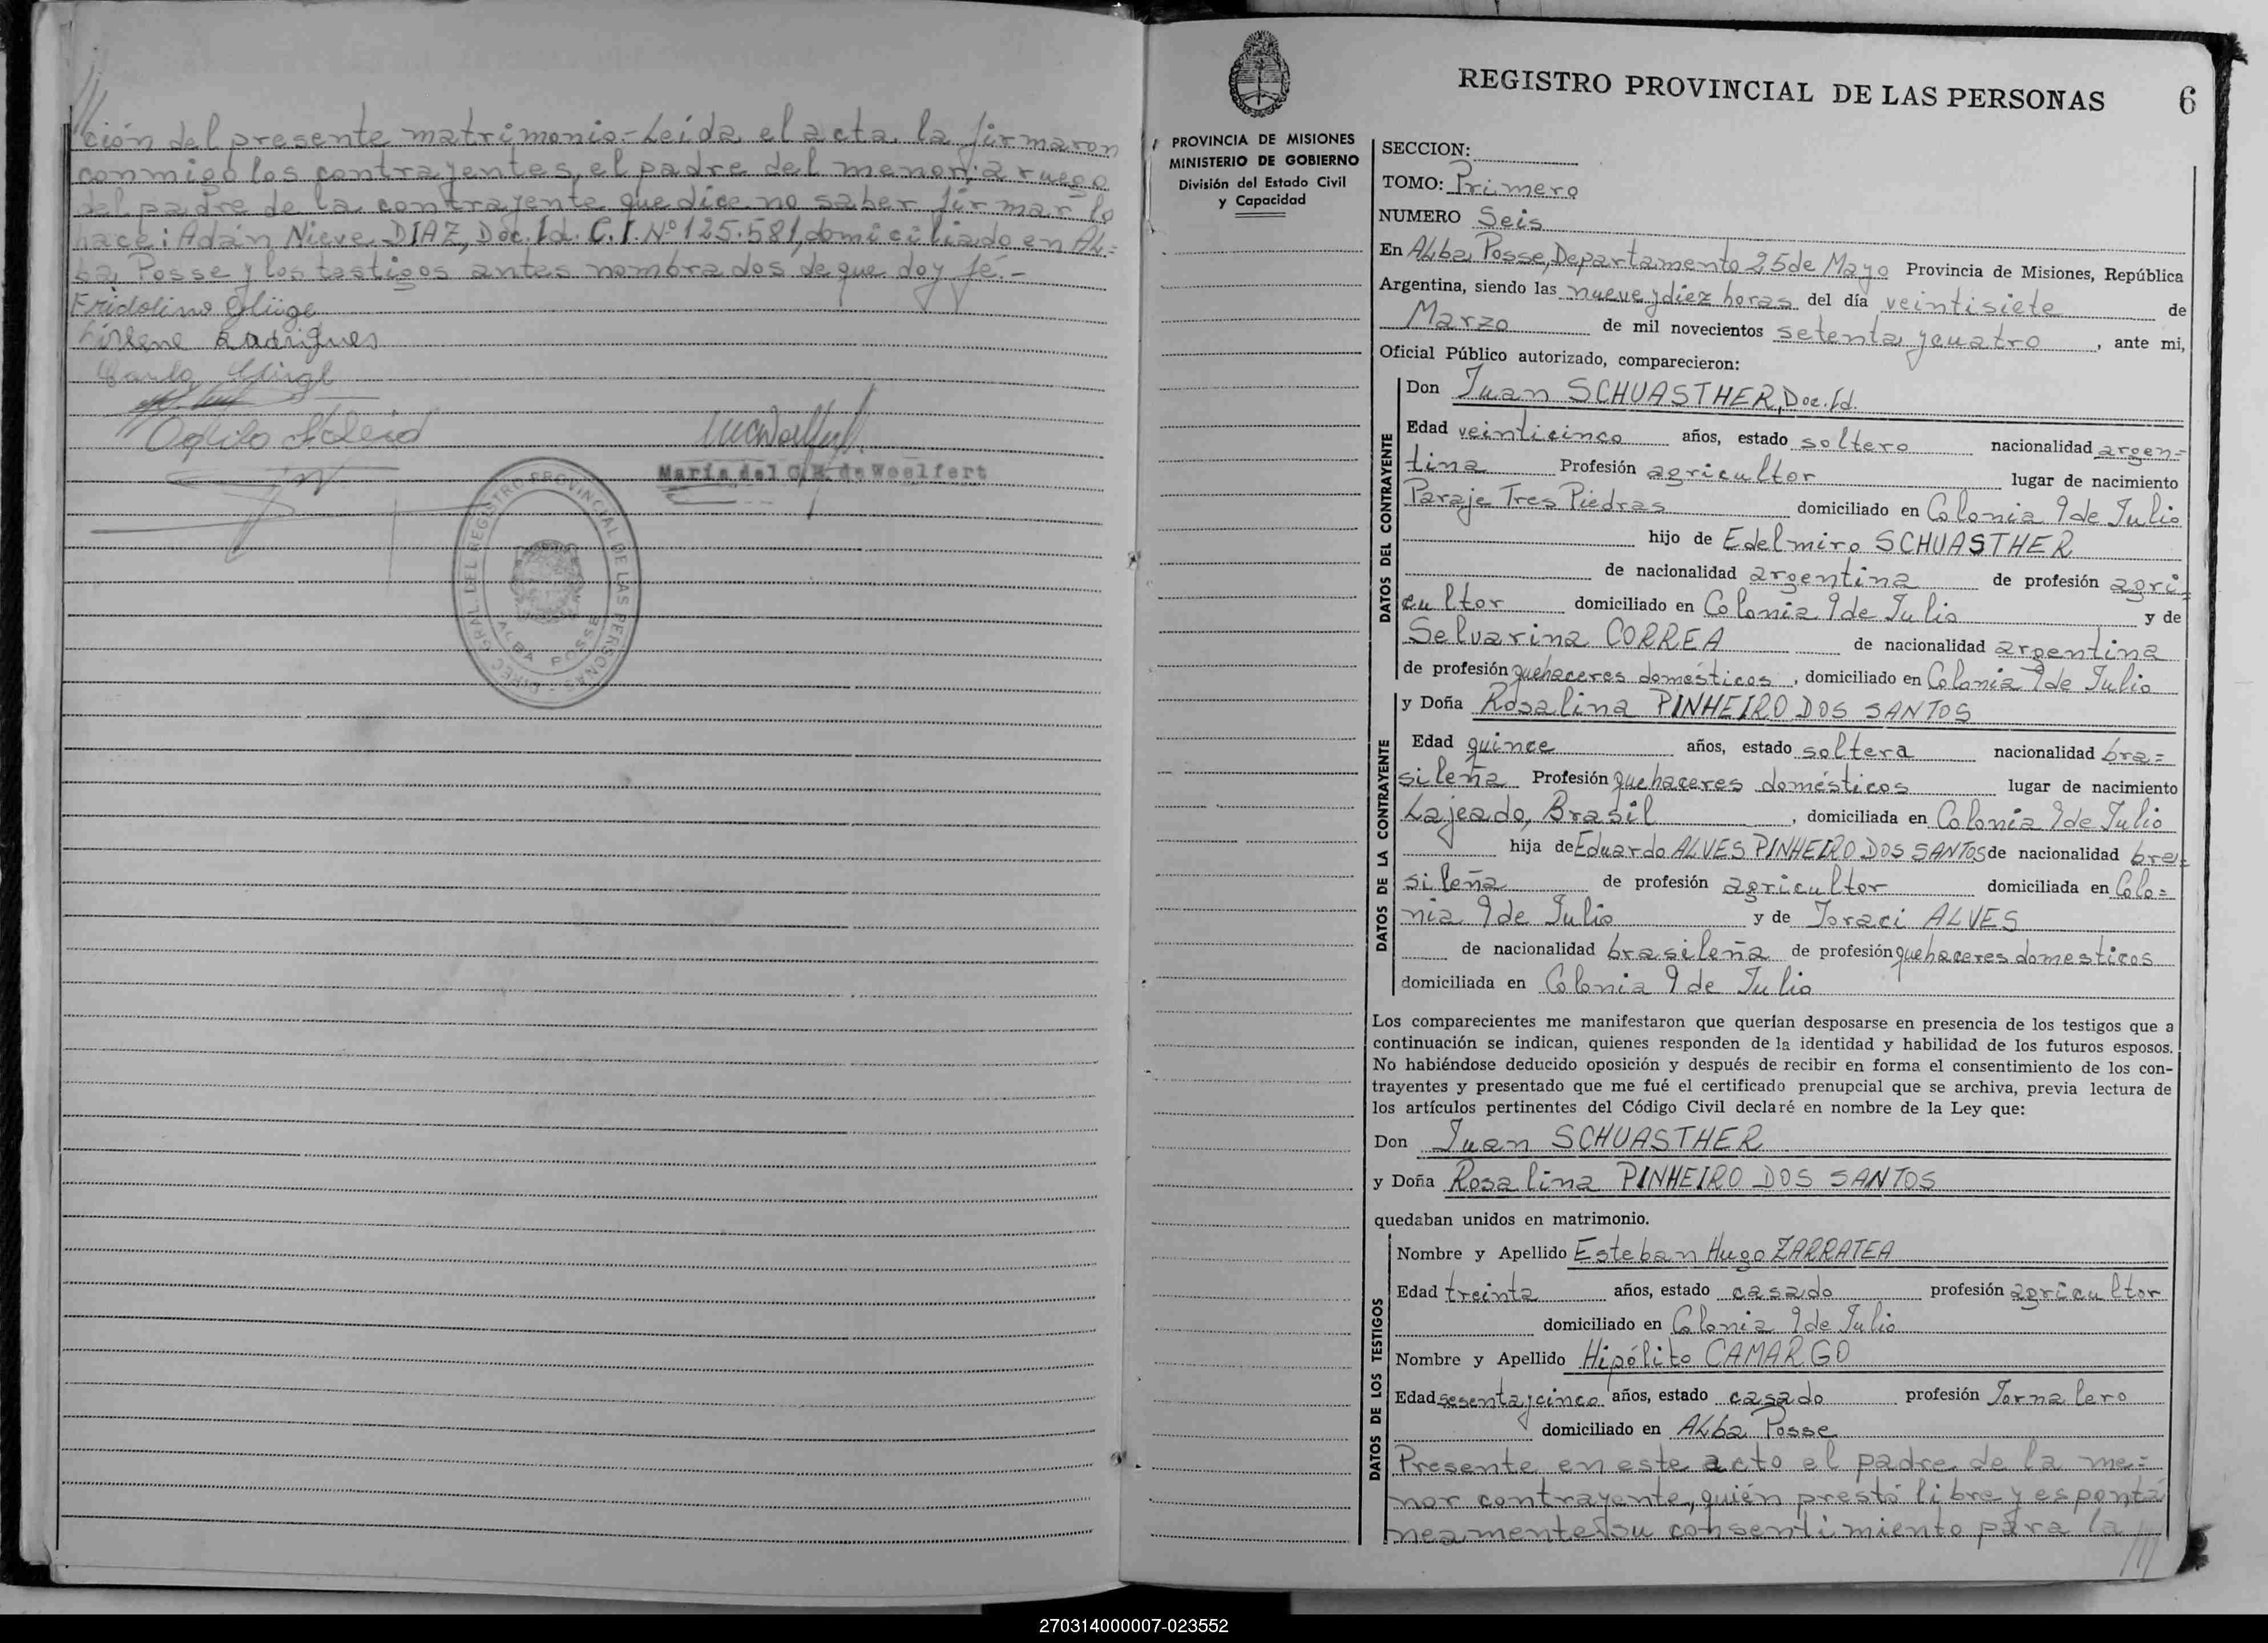 ción del presente matrimonio.=Leída el acta, la firmaron
conmigo los contrayentes, el padre del menor; a ruego
del padre de la contrayente que dice no saber firmar lo
hace: Adán Nieve DIAZ, Doc. Id. C.I. Nº 125.581, domiciliado en Al=
ba Posse y los testigos antes nombrados de que doy fé.-
Fridolino Glüge
Lirlene Rodrigues
María del C. M. de Woelfert
DIREC. GRAL. DEL REGISTRO PROVINCIAL DE LAS PERSONAS
ALBA POSSE
REGISTRO PROVINCIAL DE LAS PERSONAS 6
PROVINCIA DE MISIONES
MINISTERIO DE GOBIERNO
División del Estado Civil
y Capacidad
SECCION:
TOMO: Primero
NUMERO Seis
En Alba Posse, Departamento 25 de Mayo Provincia de Misiones, República
Argentina, siendo las nueve y diez horas del día veintisiete de
Marzo de mil novecientos setenta y cuatro, ante mi,
Oficial Público autorizado, comparecieron:
DATOS DEL CONTRAYENTE
Don Juan SCHUASTHER, Doc. Id.
Edad veinticinco años, estado soltero nacionalidad argen=
tina Profesión agricultor lugar de nacimiento
Paraje Tres Piedras domiciliado en Colonia 9 de Julio
hijo de Edelmiro SCHUASTHER
de nacionalidad argentina de profesión agri=
cultor domiciliado en Colonia 9 de Julio y de
Selvarina CORREA de nacionalidad argentina
de profesión quehaceres domésticos, domiciliado en Colonia 9 de Julio
DATOS DE LA CONTRAYENTE
y Doña Rosalina PINHEIRO DOS SANTOS
Edad quince años, estado soltera nacionalidad bra=
sileña Profesión quehaceres domésticos lugar de nacimiento
Lajeado, Brasil, domiciliada en Colonia 9 de Julio
hija de Eduardo ALVES PINHEIRO DOS SANTOS de nacionalidad bra=
sileña de profesión agricultor domiciliada en Colo=
nia 9 de Julio y de Joraci ALVES
de nacionalidad brasileña de profesión quehaceres domesticos
domiciliada en Colonia 9 de Julio
Los comparecientes me manifestaron que querían desposarse en presencia de los testigos que a
continuación se indican, quienes responden de la identidad y habilidad de los futuros esposos.
No habiéndose deducido oposición y después de recibir en forma el consentimiento de los con-
trayentes y presentado que me fué el certificado prenupcial que se archiva, previa lectura de
los artículos pertinentes del Código Civil declaré en nombre de la Ley que:
Don Juan SCHUASTHER
y Doña Rosalina PINHEIRO DOS SANTOS
quedaban unidos en matrimonio.
DATOS DE LOS TESTIGOS
Nombre y Apellido Esteban Hugo ZARRATEA
Edad treinta años, estado casado profesión agricultor
domiciliado en Colonia 9 de Julio
Nombre y Apellido Hipólito CAMARGO
Edad sesenta y cinco años, estado casado profesión Jornalero
domiciliado en Alba Posse
Presente en este acto el padre de la me=
nor contrayente, quién prestó libre y espontá
neamente su consentimiento para la
270314000007-023552